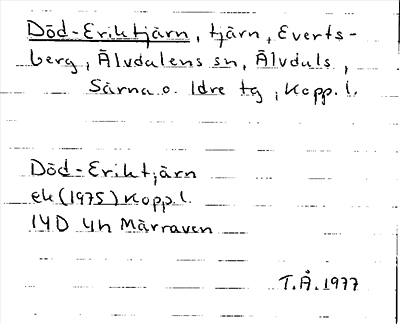 Död-Eriktjärn, tjärn, Everts-
berg, Älvdalens sn, Älvduls,
Särna o. Idre tg, Kopp. l.
Död-Eriktjärn
ek (1975) Kopp. l.
14D 4h Märraven
T.Å. 1977